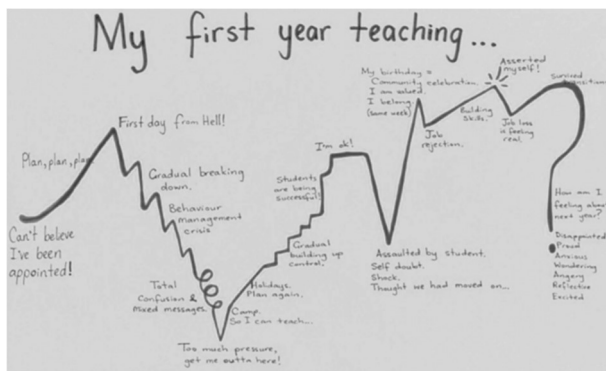 My first year teaching...
Can't believe
I've been
appointed!
Plan, plan, plan.
First day from Hell!
Gradual breaking
down.
Behaviour
management
crisis
Total
Confusion &
Mixed messages.
Too much pressure,
get me outta here!
Camp.
So I can teach...
Holidays.
Plan again.
Gradual
building up
control.
Students
are being
successful!
I'm ok!
Assaulted by student.
Self doubt.
Shock.
Thought we had moved on...
My birthday =
Community celebration.
I am valued.
I belong
(same week)
Job
rejection.
Building
Skills.
Asserted
myself!
Job loss
is feeling
real.
Survived
transition
How am I
feeling about
next year?
Disappointed
Proud
Anxious
Wondering
Angery
Reflective
Excited